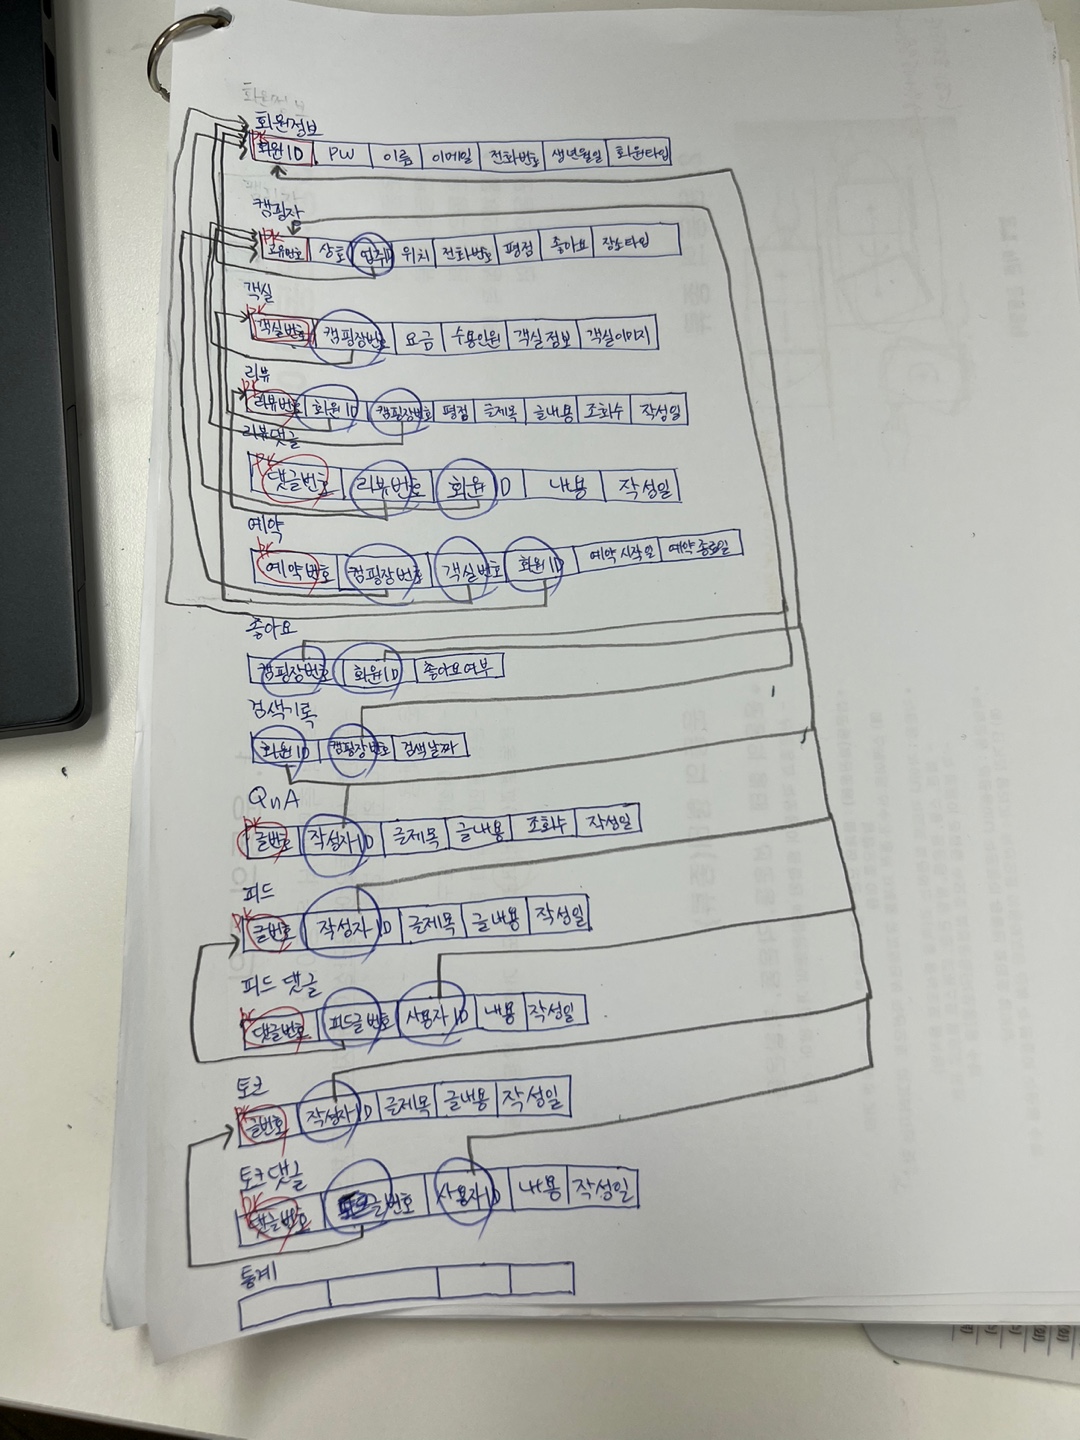 회원정보
PK
회원ID PW 이름 이메일 전화번호 생년월일 회원타입
캠핑장
PK
고유번호 상호 위치 전화번호 평점 좋아요 장소타입
객실
PK
객실번호 캠핑장번호 요금 수용인원 객실정보 객실이미지
리뷰
PK
리뷰번호 회원ID 캠핑장번호 평점 글제목 글내용 조회수 작성일
리뷰댓글
PK
댓글번호 리뷰번호 회원ID 내용 작성일
예약
PK
예약번호 캠핑장번호 객실번호 회원ID 예약 시작일 예약 종료일
좋아요
캠핑장번호 회원ID 좋아요여부
검색기록
회원ID 캠핑장번호 검색날짜
QnA
PK
글번호 작성자ID 글제목 글내용 조회수 작성일
피드
PK
글번호 작성자ID 글제목 글내용 작성일
피드 댓글
PK
댓글번호 피드글번호 사용자ID 내용 작성일
토크
PK
글번호 작성자ID 글제목 글내용 작성일
토크댓글
PK
댓글번호 글번호 사용자ID 내용 작성일
통계